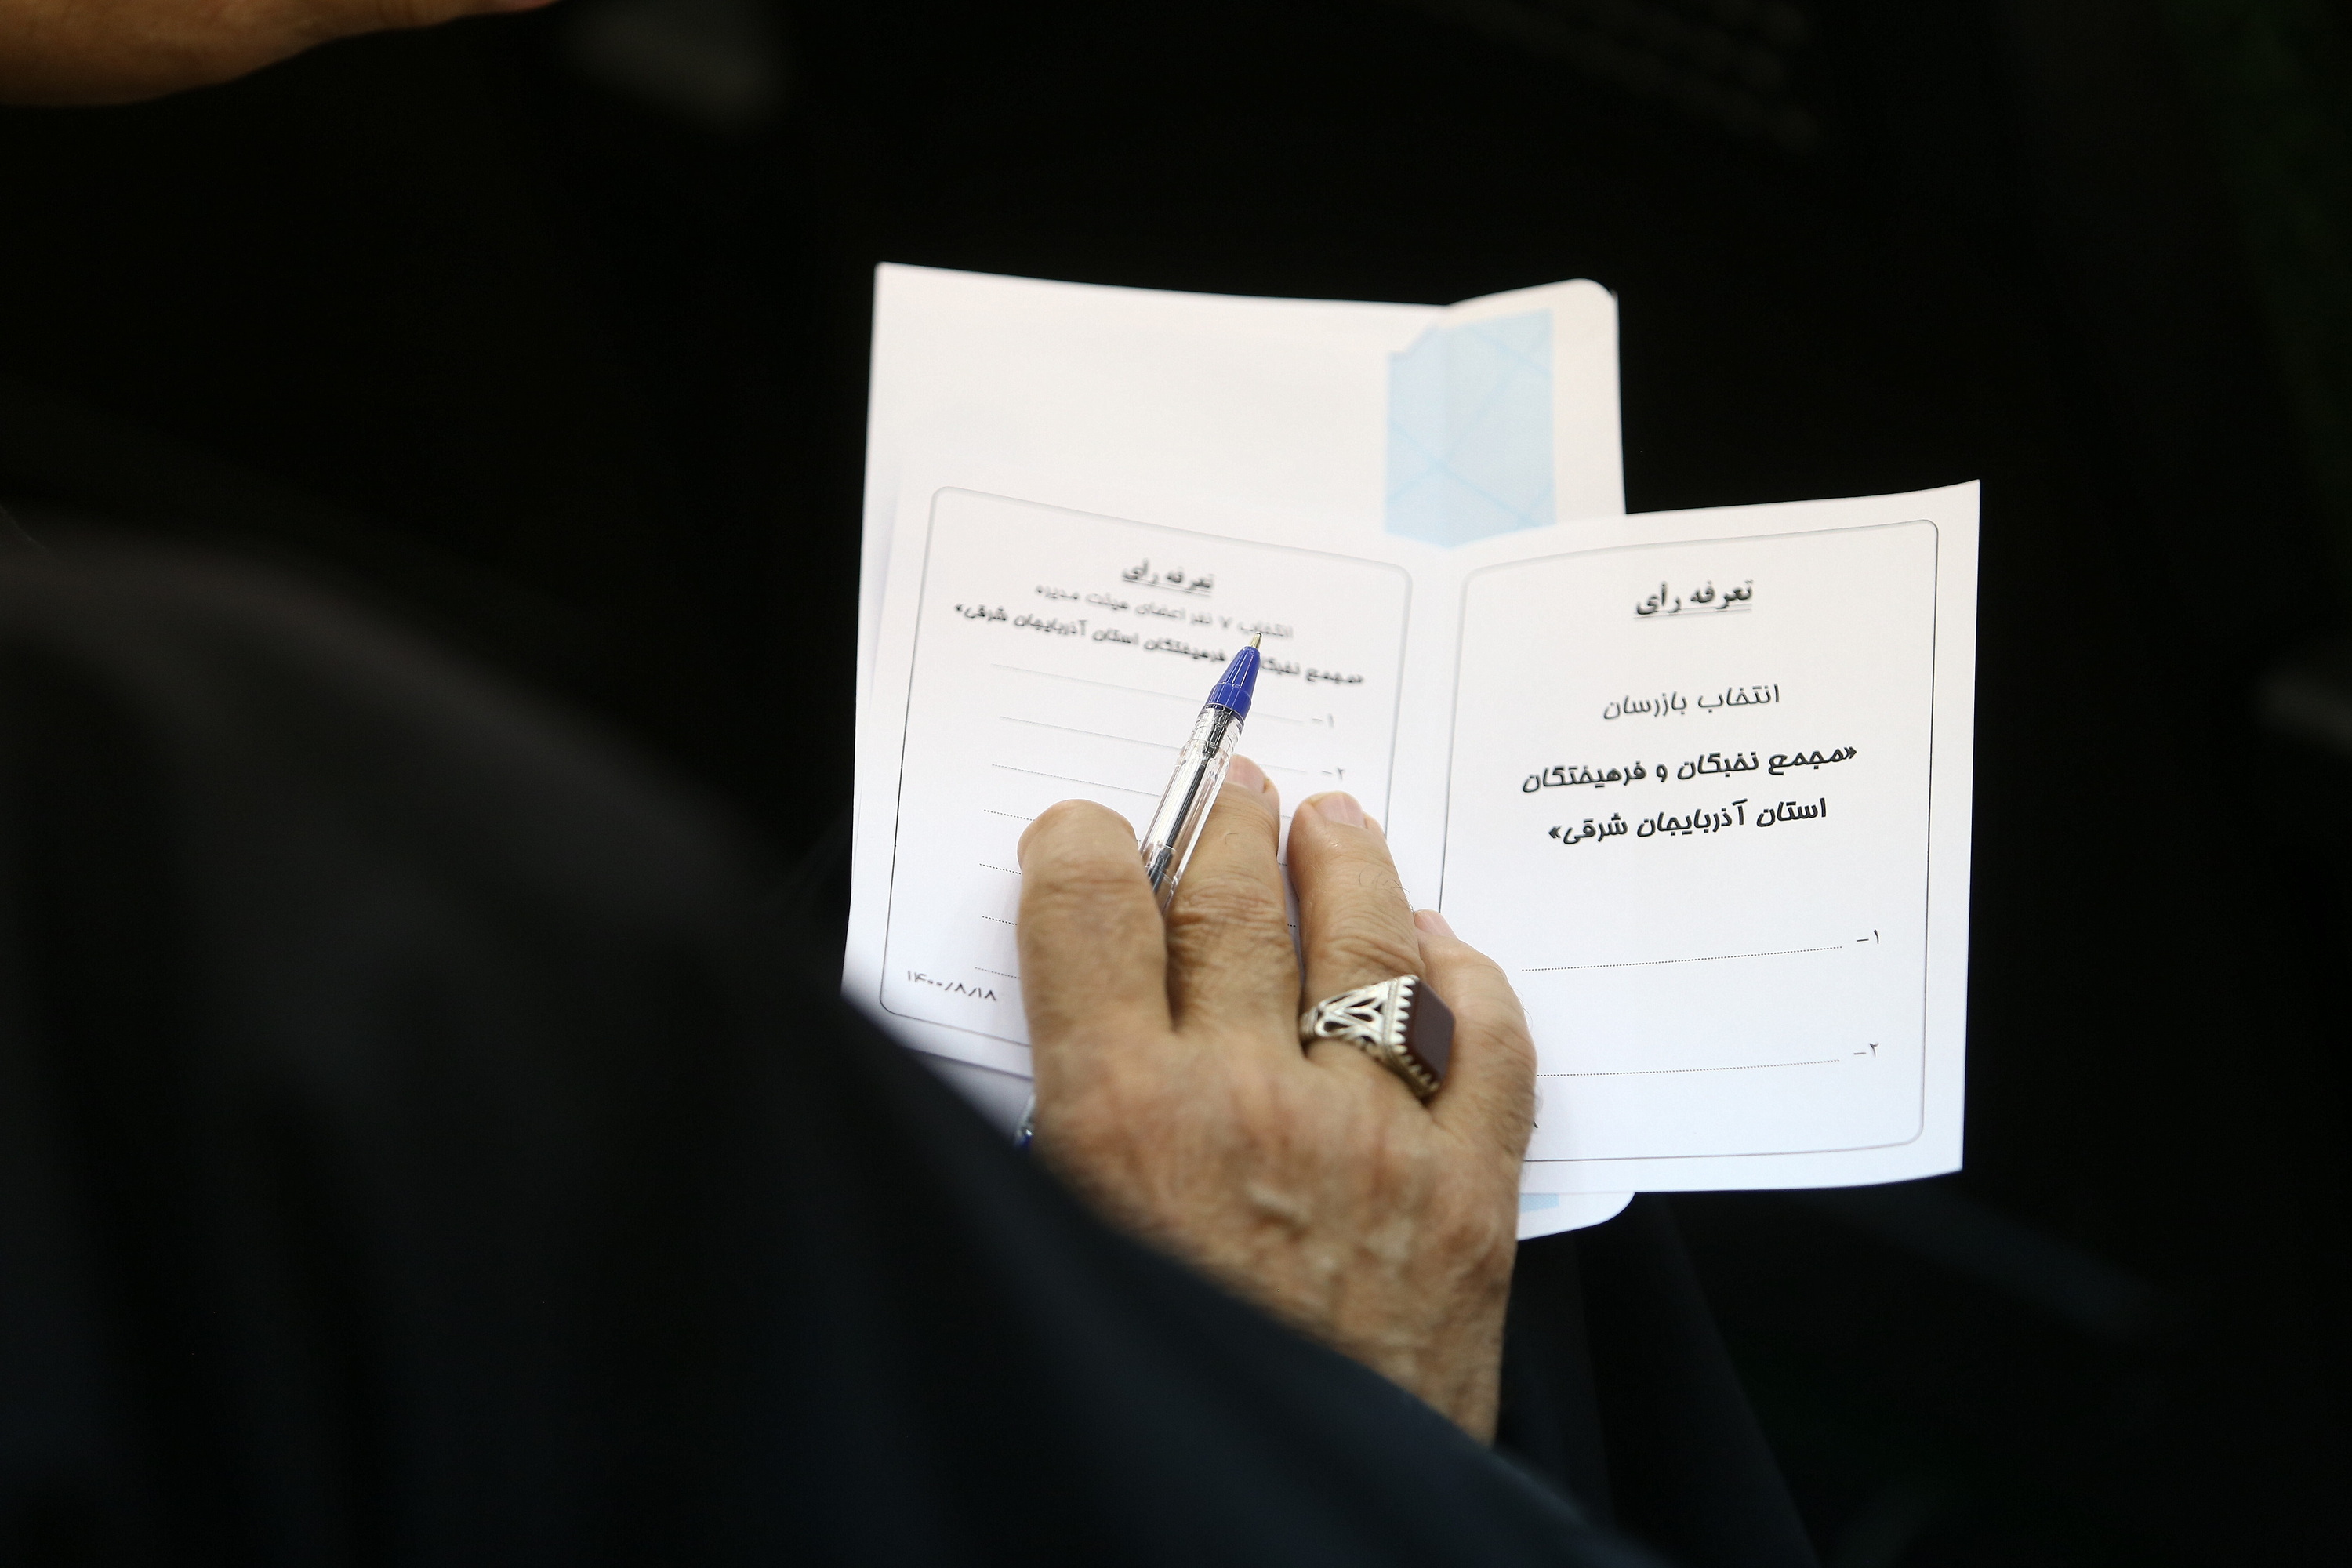 تعرفه رأی
انتخاب بازرسان
«مجمع نخبگان و فرهیختگان
استان آذربایجان شرقی»
۱-
۲-
تعرفه رأی
انتخاب ۷ نفر اعضای هیئت مدیره
«مجمع نخبگان فرهیختگان استان آذربایجان شرقی»
۱-
۲-
۱۴۰۰/۸/۱۸